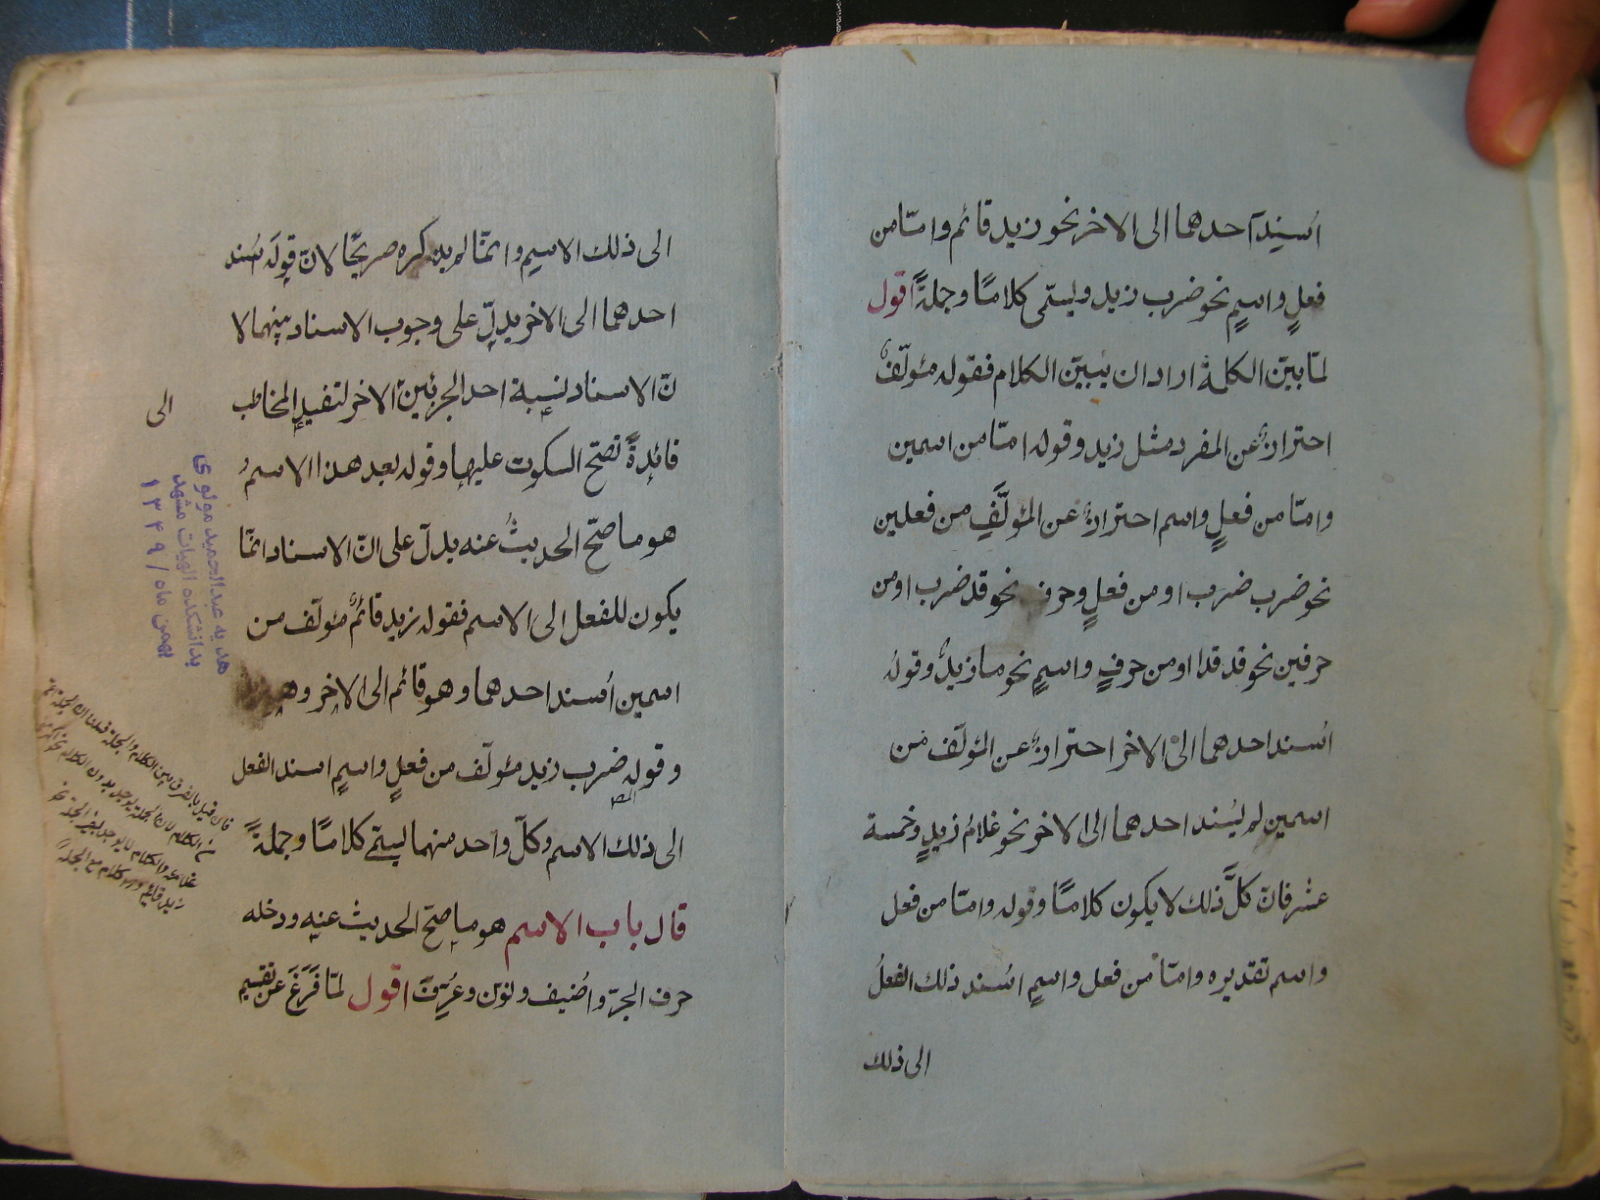 اُسنِدَ احدهما الى الاخر نحو زيد قائم وامّا من
فعلٍ واسمٍ نحو ضرب زيد وليسمّى كلامًا وجملةً اقول
لمّا بيّن الكلمة اراد ان يُبيّن الكلام فقوله مئولّفٌ
احترازٌ عن المفرد مثل زيد وقوله امّا من اسمين
وامّا من فعلٍ واسم احترازٌ عن المؤلَّفِ من فعلين
نحو ضرب ضرب او من فعلٍ وحرف نحو قد ضرب اومن
حرفين نحو قد قدا اومن حرفٍ واسمٍ نحو ما زيدٌ وقولهُ
اُسند احدهما الى الاخر احترازٌ عن المؤلّف من
اسمين لم يُسند احدهما الى الاخر نحو غلامُ زيدٍ وخمسة
عشر فانّ كلَّ ذلك لا يكون كلامًا وقوله وامّا من فعل
واسم تقديره وامّا من فعل واسمٍ اُسند ذلك الفعلُ
الى ذلك
الى ذلك الاسمِ وانمّا لم يذكره صريحًا لانّ قولَه يُسند
احدهما الى الاخر يدلّ على وجوب الاسناد بينهما لا
نّ الاسناد نسبة احد الجزئين الاخر لتفيد المخاطب
الى
فائدةً تصحّ السكوت عليها وقوله بعد هذا الاسمُ
هو ما صحّ الحديثُ عنه يدلّ على انّ الاسناد انمّا
يكون للفعل الى الاسم فقوله زيد قائمٌ مئولّف من
اسمين اُسند احدهما وهو قائم الى الاخر وهو
وقوله ضرب زيد مئولّف من فعلٍ واسمٍ اسند الفعل
الى ذلك الاسم وكلّ واحد منهما ليسمّى كلامًا وجملةً
قال باب الاسم هو ما صحّ الحديث عنه ودخله
حرف الجرّ واضيف ونوّن وعُرِّفَ اقول لمّا فَرَغَ عن تقسيم
هديه عبدالحميد مولوى
بدانشكده الهيات مشهد
بهمن ماه / ١٣٤٩
فان قيل بالفرق بين الكلام والجملة قلنا ان الجملة
من الكلام لان الجملة يوجد بدون الكلام نحو
غلامه والكلام لا يوجد بغير الجملة نحو
زيد قائم وهو كلام مع الجملة